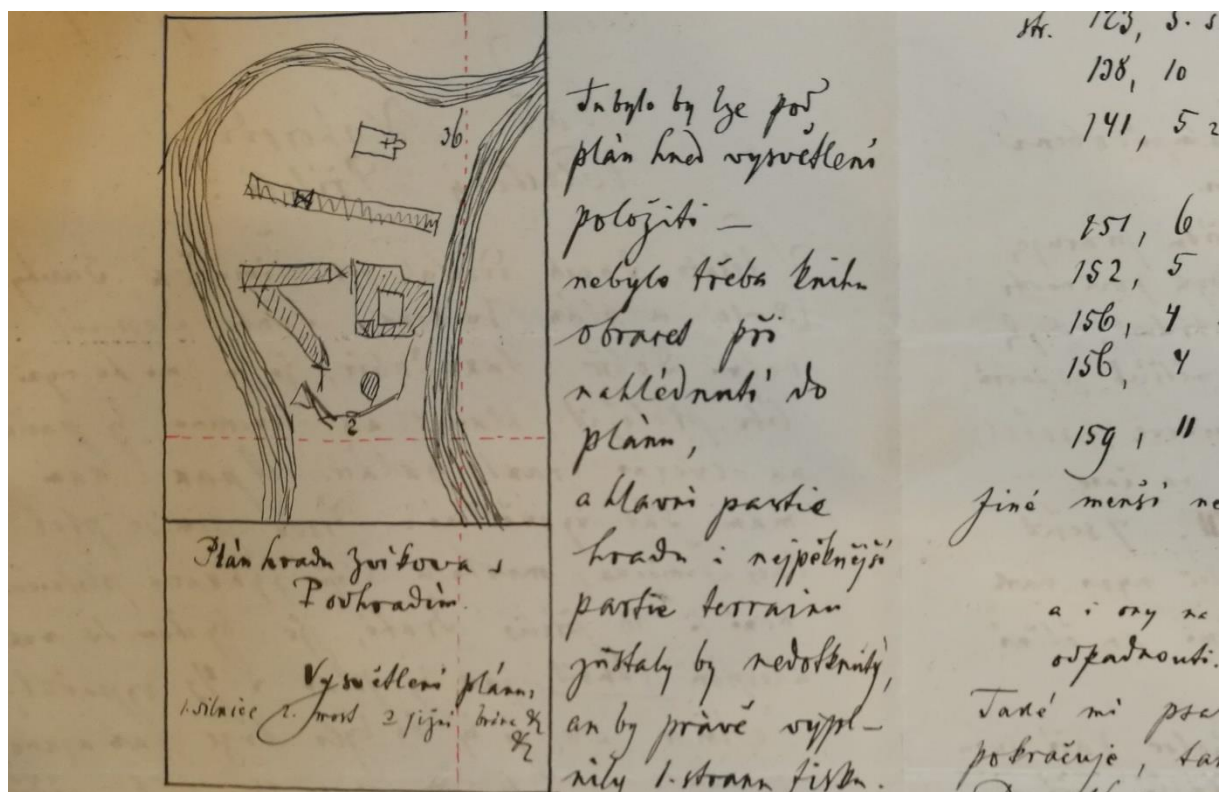 36
2
Plán hradu Zvíkova s
Podhradím.
Vysvětlení plánu,
1. silnice 2. most 2 jižní brána &
&
Tu bylo by lze pod
plán hned vysvětlení
položiti —
nebylo třeba knihu
obracet při
nahlédnutí do
plánu,
a hlavní partie
hradu i nejpěknější
partie terrainu
zůstaly by nedotknuty,
an by právě vypl-
nily 1. stranu tisku.
str. 123, 3. s
138, 10
141, 5 z
151, 6
152, 5
156, 4
156, 4
159, 11
Jiné menší ne
a i ony na
odpadnouti.
Také mi psa
pokračuje, tak